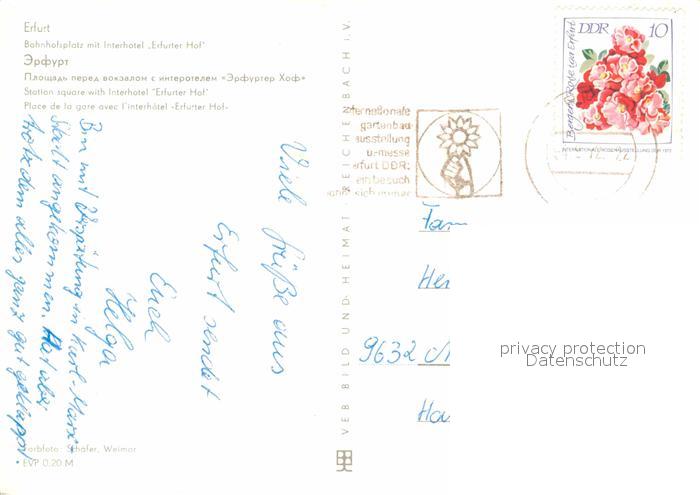 Erfurt
Bahnhofsplatz mit Interhotel „Erfurter Hof"
Эрфурт
Площадь перед вокзалом с интеротелем «Эрфуртер Хоф»
Station square with Interhotel "Erfurter Hof"
Place de la gare avec l'interhôtel «Erfurter Hof»
Viele Grüße aus
Erfurt sendet
Euch
Helga
Bin mit Verspätung in Karl-Marx-
Stadt angekommen. Hat aber
trotzdem alles ganz gut geklappt.
Farbfoto: Schäfer, Weimar
EVP 0.20 M
VEB BILD UND HEIMAT REICHENBACH i. V.
ternationale
gartenbau
ausstellung
u-messe
erfurt DDR:
ein besuch
sich immer
DDR 10
Bergers Rose aus Erfurt
INTERNATIONALE ROSENAUSSTELLUNG DDR 1972
Fam
Her
9632
Ha
privacy protection
Datenschutz